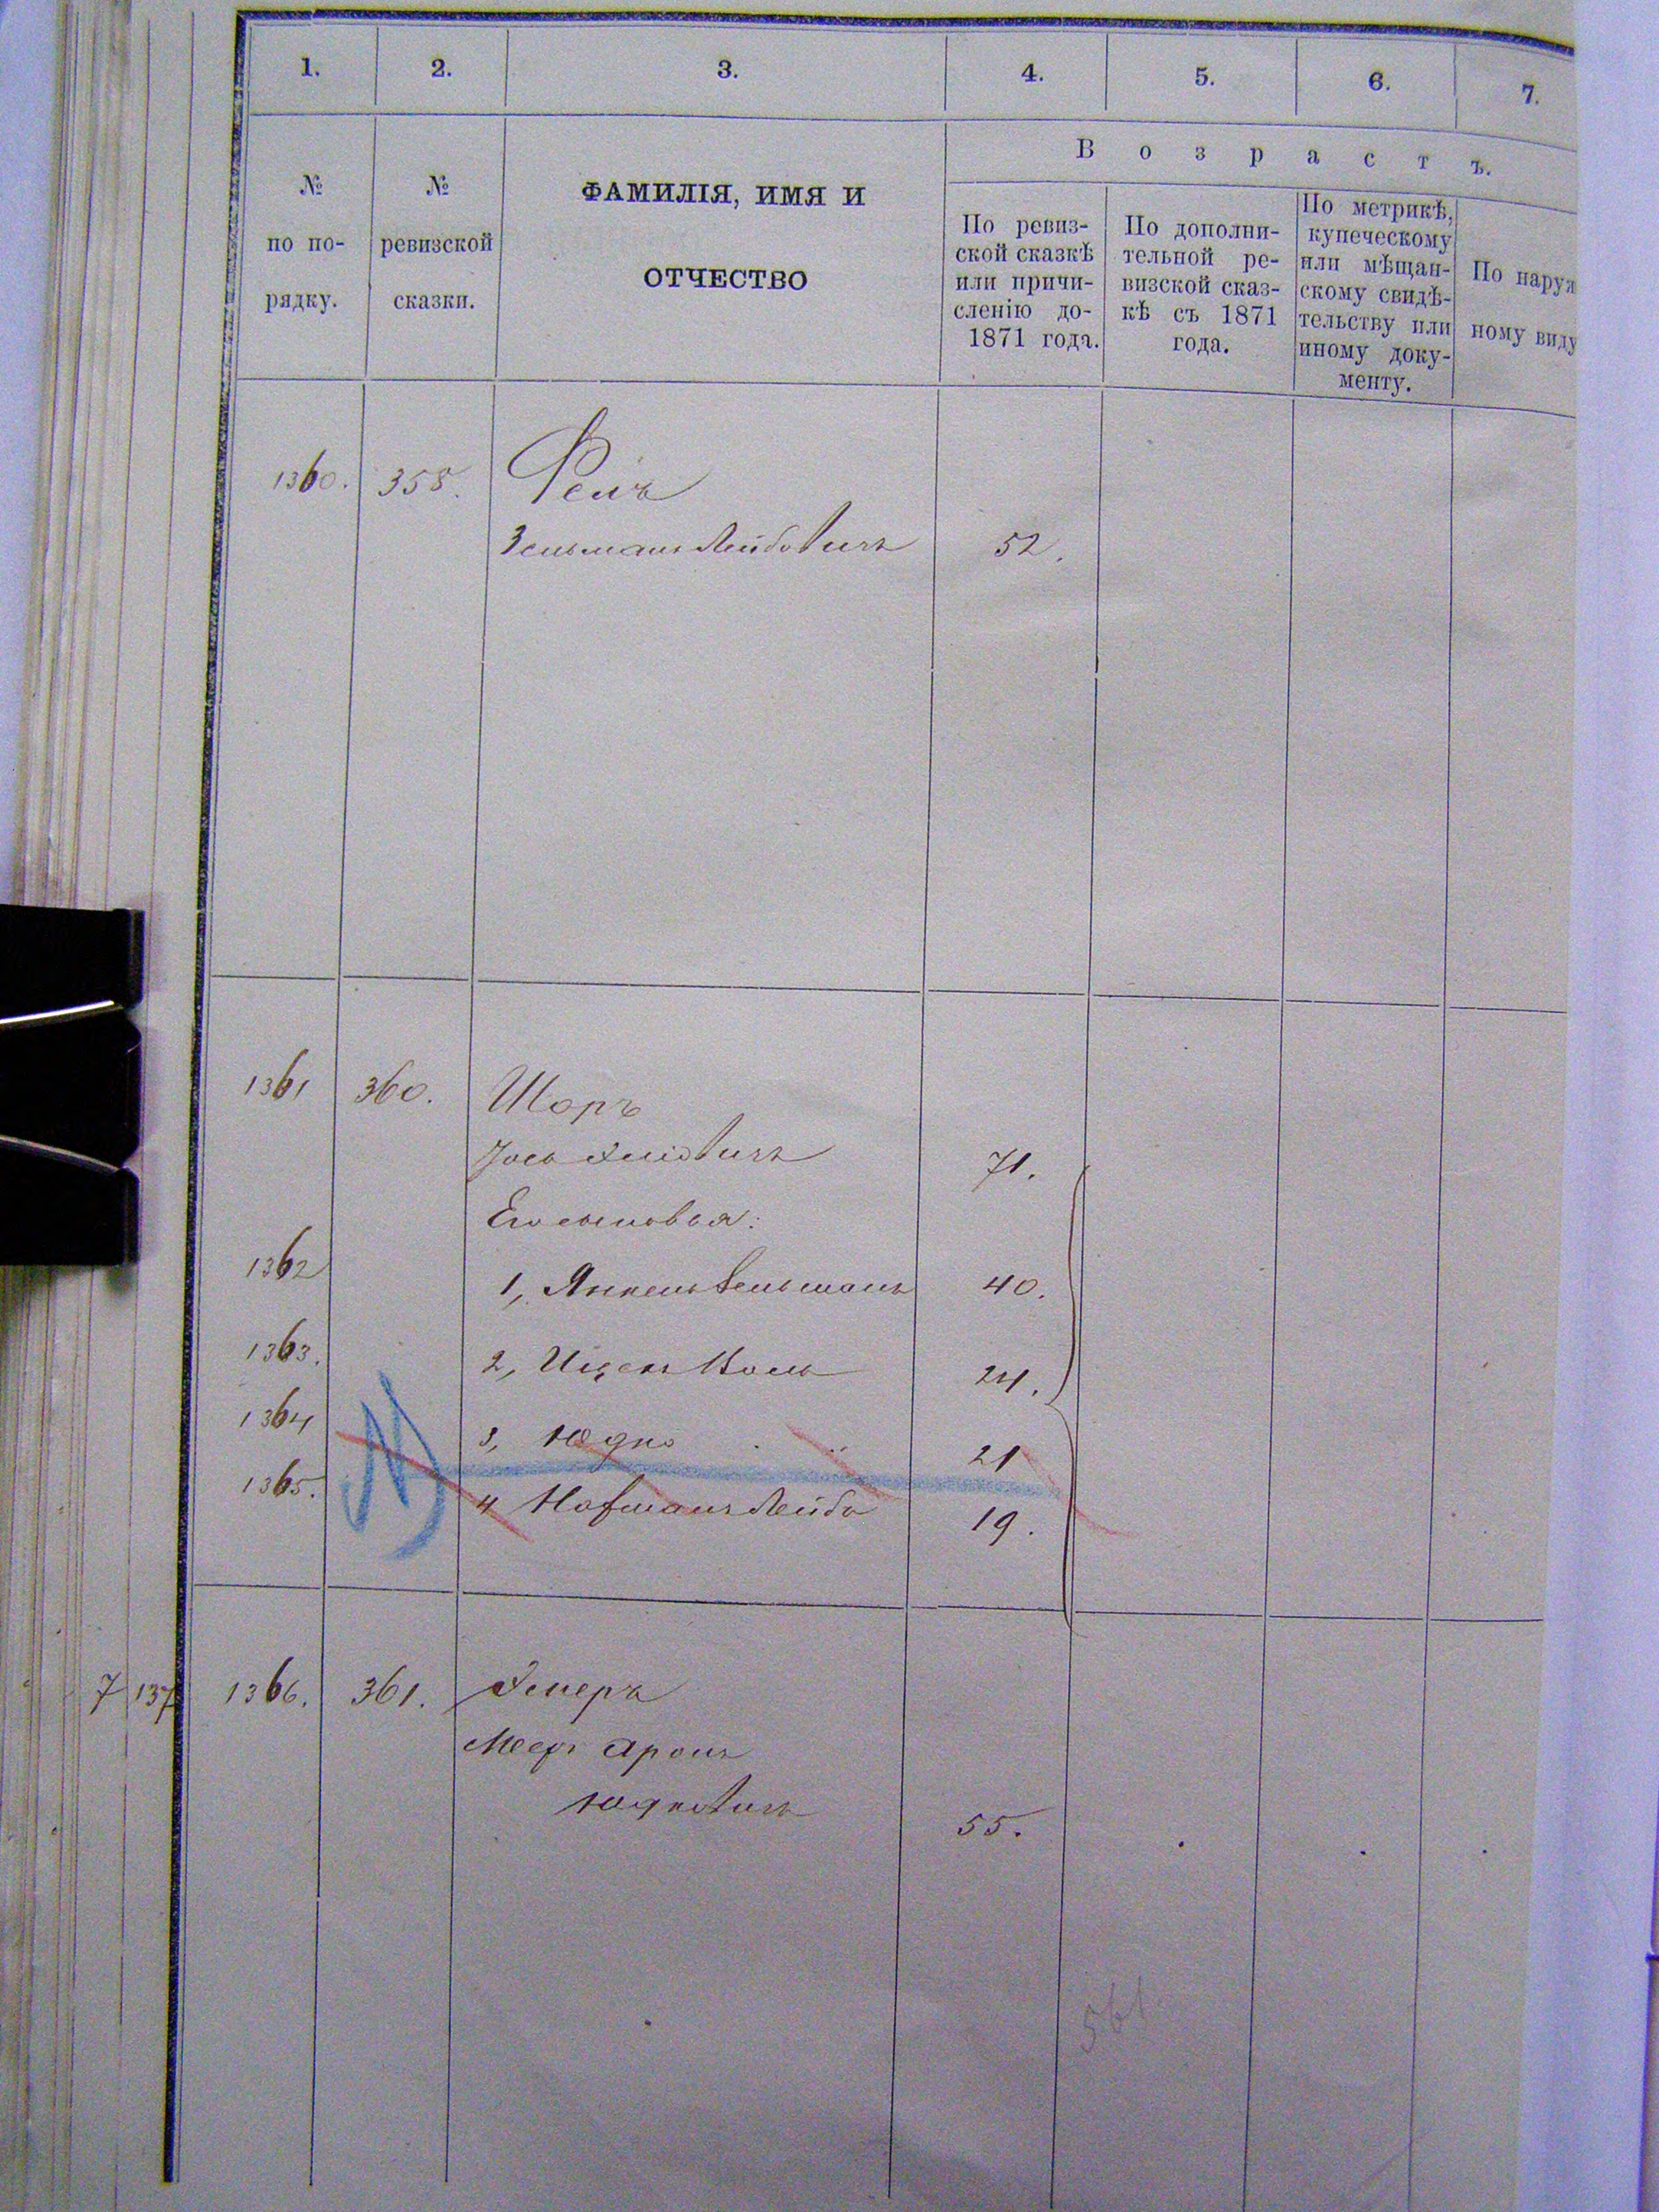 1. 2. 3. 4. 5. 6. 7.
№
по по-
рядку.
№
ревизской
сказки.
ФАМИЛІЯ, ИМЯ И
ОТЧЕСТВО
Возрастъ.
По ревиз-
ской сказкѣ
или причи-
сленію до-
1871 года.
По дополни-
тельной ре-
визской сказ-
кѣ съ 1871
года.
По метрикѣ,
купеческому
или мѣщан-
скому свидѣ-
тельству или
иному доку-
менту.
По наруж
ному виду
1360. 358.
Зельманъ Лейбовичъ 52.
1361 360. Шоръ
Іось 71.
Его сыновья:
1362 1, Янкель Зельманъ 40.
1363. 2, 24.
1364 3, Юдко 21
1365. 4 Нафманъ Лейба 19.
7 137 1366. 361.
Меер Аронъ
Юдковичъ 55.
561